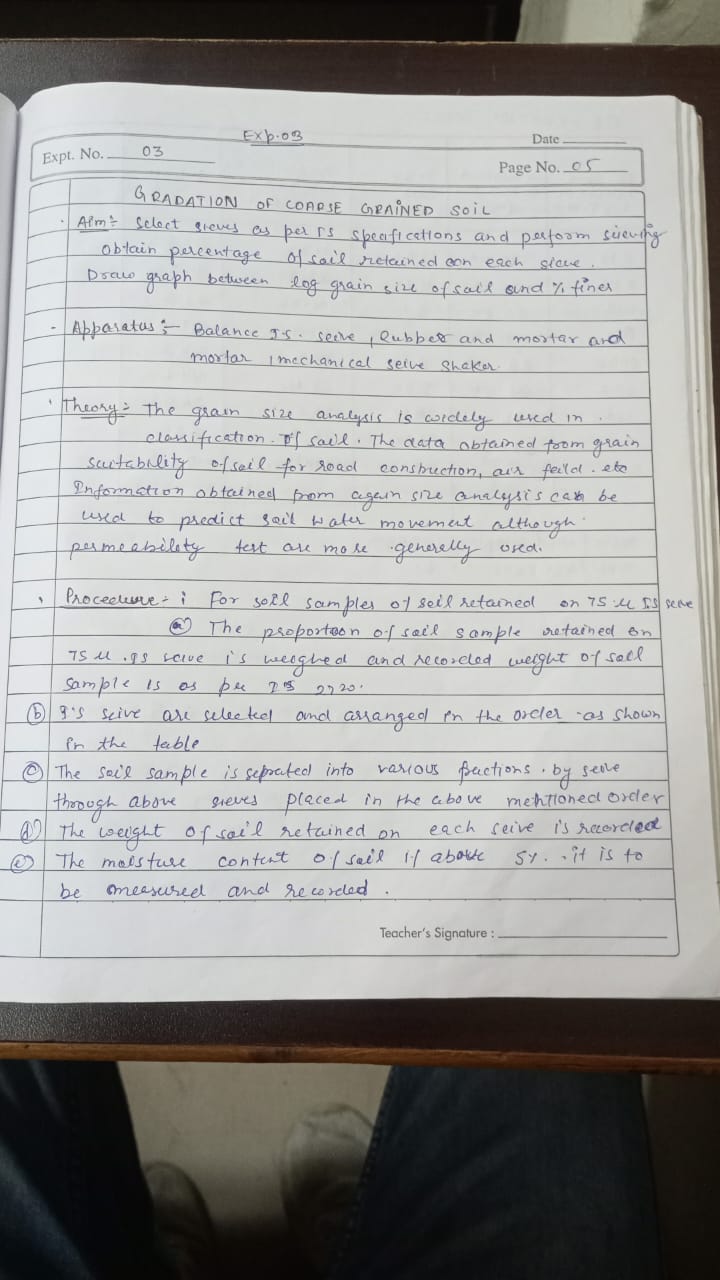 Exp.03
Date
Expt. No. 03
Page No. 05
GRADATION OF COARSE GRAINED SOIL
Aim:- Select sieves as per IS specifications and perform sieving
obtain percentage of soil retained on each sieve.
Draw graph between log grain size of soil and % finer
- Apparatus :- Balance I.S. seive, Rubber and mortar and
mortar, mechanical seive shaker.
Theory:- The grain size analysis is widely used in
classification. of soil. The data obtained from grain
suitability of soil for road construction, air feild. etc
Information obtained from again size analysis can be
used to predict soil water movement although
permeability test are more generally used.
Procedure:- i For soil samples of soil retained on 75 μ IS seive
(a) The proportion of soil sample retained on
75 μ .IS seive is weoghed and recorded weight of soil
sample is as per IS 2720.
(b) I's seive are selected and arranged in the order as shown
in the table
(c) The soil sample is seprated into various fractions. by seive
through above sieves placed in the above mentioned order
(d) The weight of soil retained on each seive is recorded
(e) The moisture content of soil if above 5%. it is to
be measured and recorded.
Teacher's Signature :